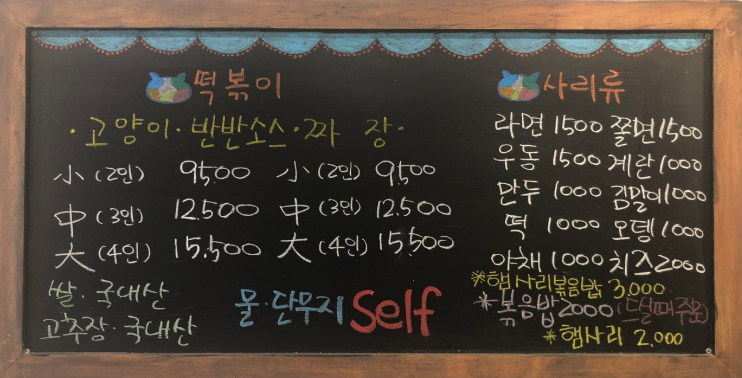 떡볶이
·고양이·반반소스·짜장·
小 (2인) 9500 小 (2인) 9500
中 (3인) 12.500 中 (3인) 12.500
大 (4인) 15.500 大 (4인) 15500
쌀·국내산
고추장·국내산
물·단무지 Self
사리류
라면 1500 쫄면 1500
우동 1500 계란 1000
만두 1000 김말이 1000
떡 1000 오뎅 1000
야채 1000 치즈 2000
*햄사리볶음밥 3,000
*볶음밥 2000 (드실때주문)
*햄사리 2.000